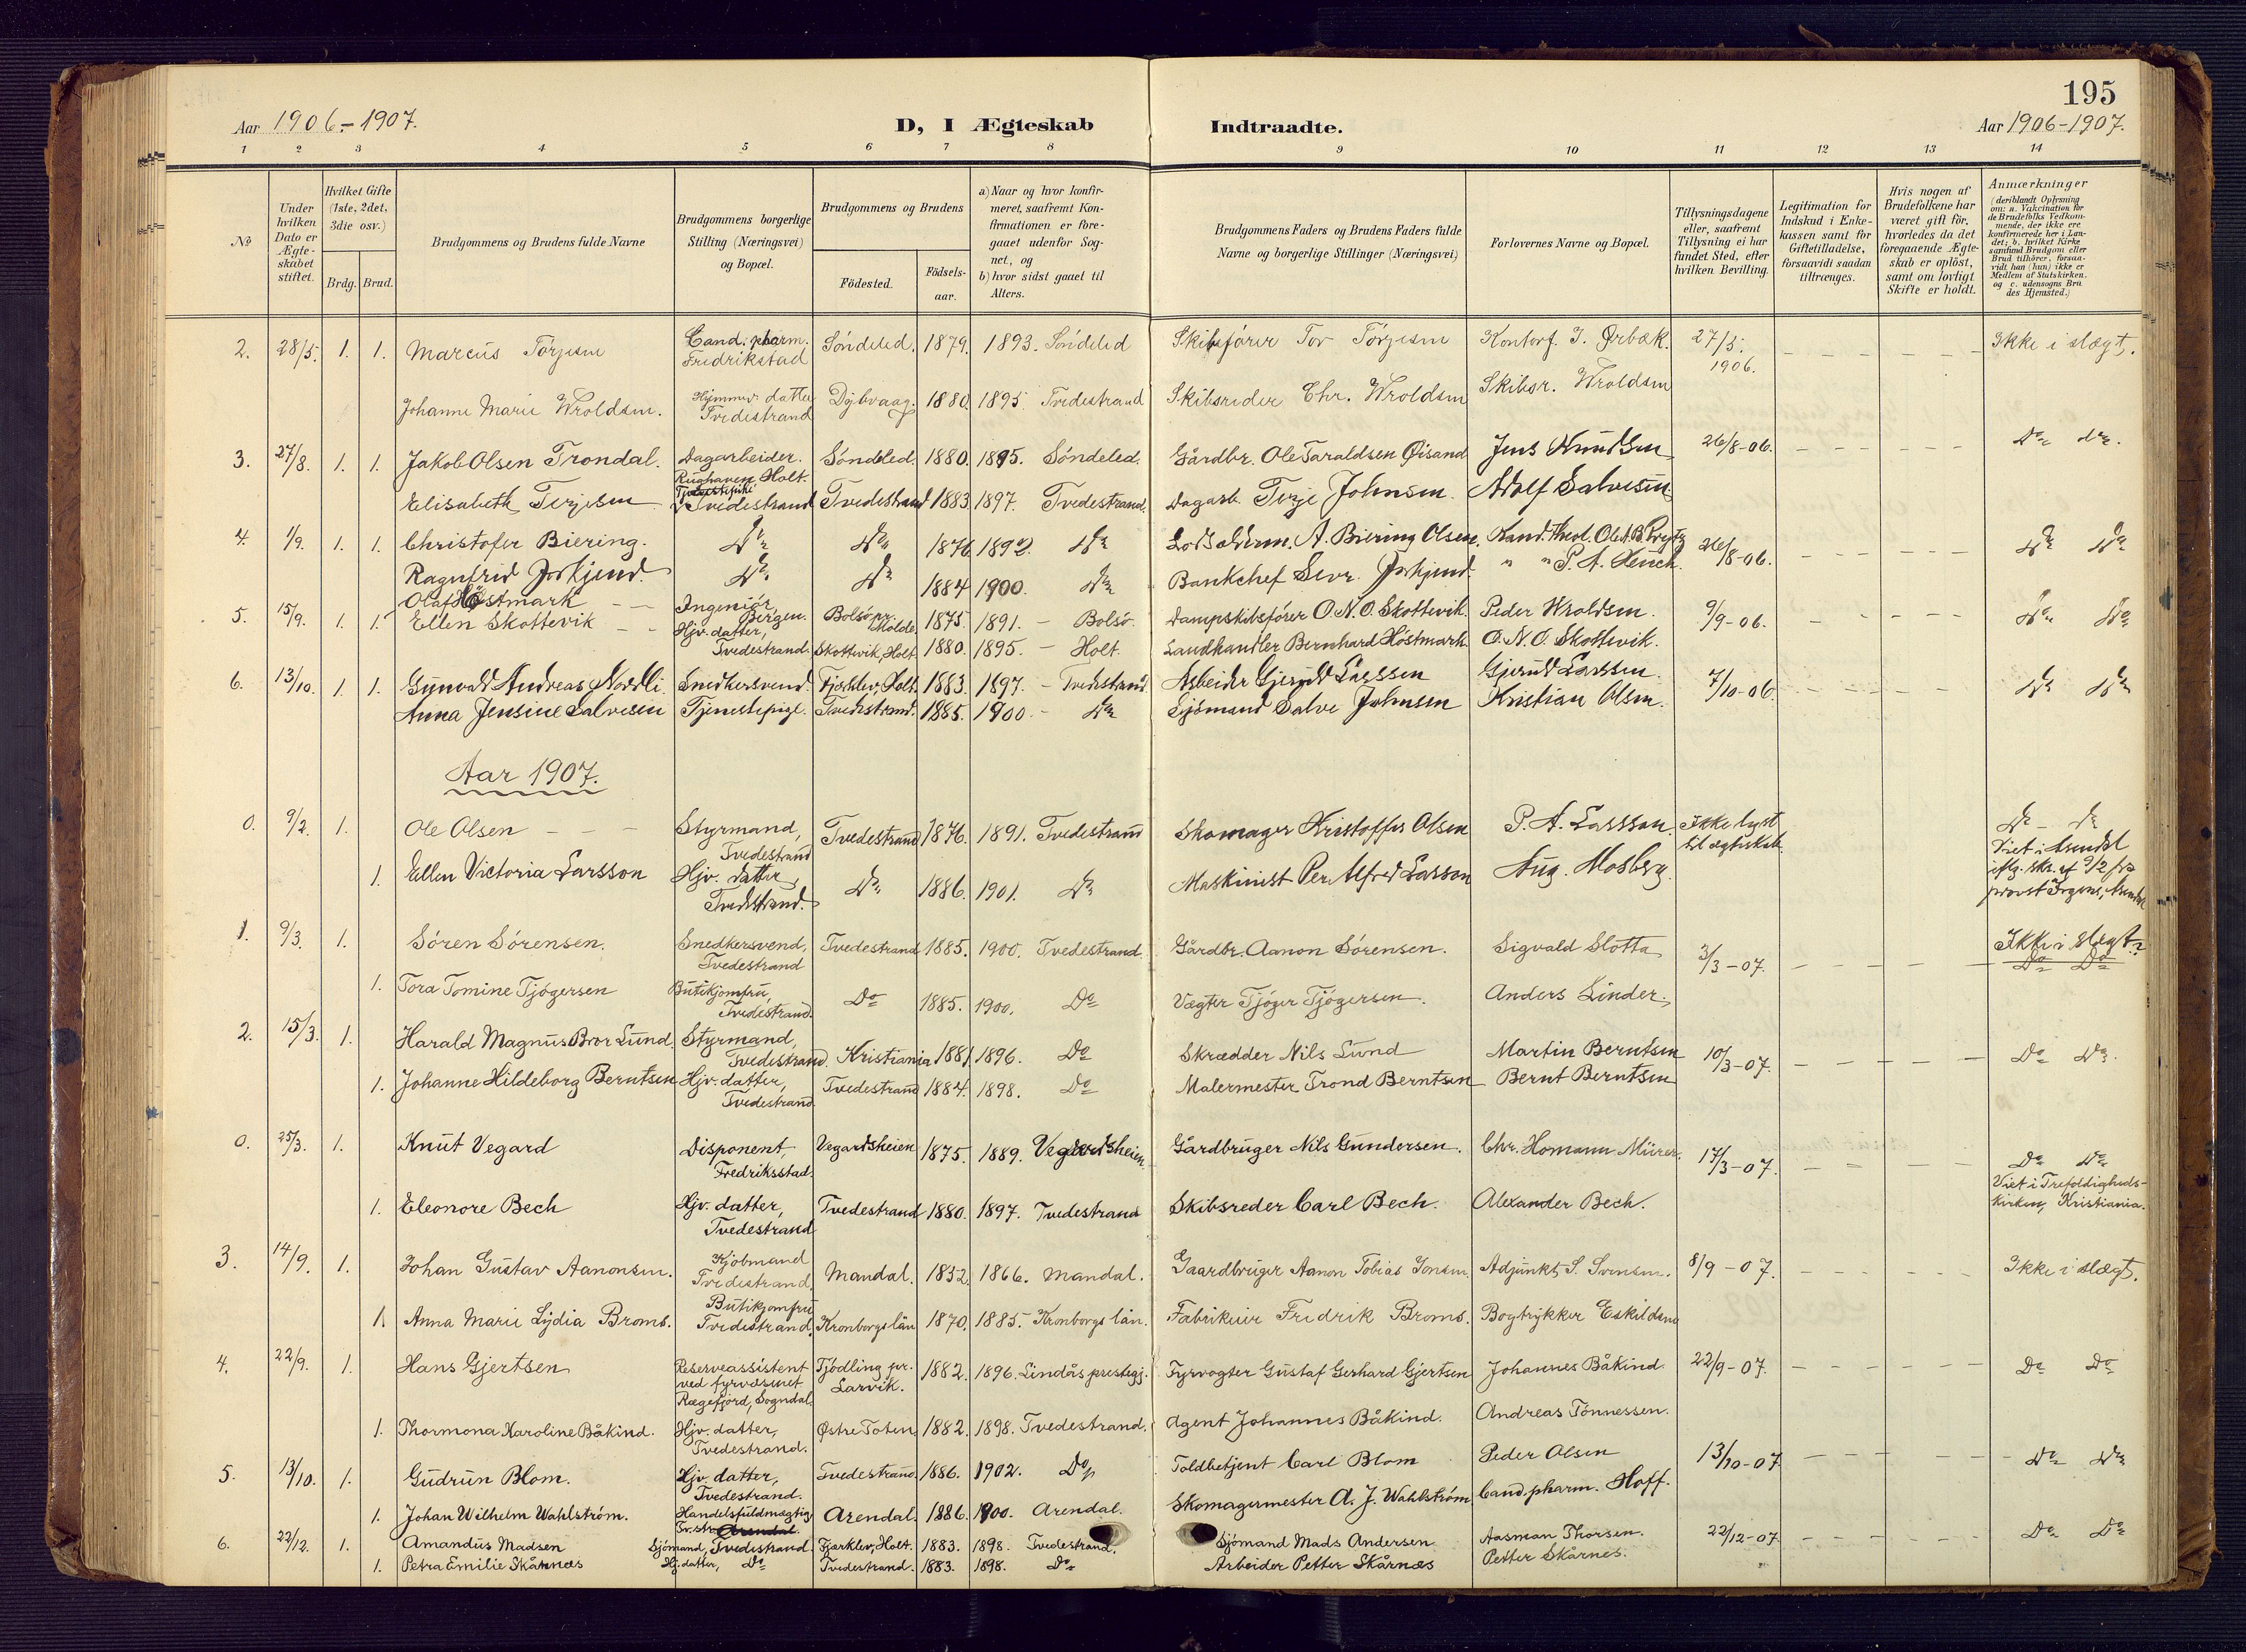 195
Aar 1906-1907.
D, I Ægteskab
Indtraadte.
Aar 1906-1907.
1 2 3 4 5 6 7 8 9 10 11 12 13 14
No
Under hvilken Dato er Ægteskabet stiftet.
Hvilket Gifte (1ste, 2det, 3die osv.)
Brdg. Brud.
Brudgommens og Brudens fulde Navne
Brudgommens borgerlige Stilling (Næringsvei) og Bopæl.
Brudgommens og Brudens
Födested.
Födsels-aar.
a) Naar og hvor konfirmeret, saafremt Konfirmationen er foregaaet udenfor Sognet, og
b) hvor sidst gaaet til Alters.
Brudgommens Faders og Brudens Faders fulde Navne og borgerlige Stillinger (Næringsvei)
Forlovernes Navne og Bopæl.
Tillysningsdagene eller, saafremt Tillysning ei har fundet Sted, efter hvilken Bevilling.
Legitimation for Indskud i Enkekassen samt for Giftetilladelse, forsaavidt saadan tiltrænges.
Hvis nogen af Brudefolkene har været gift för, hvorledes da det foregaaende Ægteskab er oplöst, samt om lovligt Skifte er holdt.
Anmærkninger (deriblandt Oplysning om: a. Vakcination for de Brudefolks Vedkommende, der ikke ere konfirmerede her i Landet; b. hvilket Kirkesamfund Brudgom eller Brud tilhörer, forsaavidt han (hun) ikke er Medlem af Statskirken, og c. udensogns Brudes Hjemsted.)
2. 28/5. 1. 1. Marcus Törjesen Cand. pharm. Fredrikstad Söndeled. 1879. 1893. Söndeled Skibsförer Tor Törjesen Kontorf. J. Ørbæk. 27/5. 1906. Ikke i slægt.
Johanne Marie Wroldsen. Hjemmev. datter Tvedestrand Dybvaag. 1880. 1895 Tvedestrand Skibsreder Chr. Wroldsen Skibsr. Wroldsen
3. 27/8. 1. 1. Jakob Olsen Trondal. Dagarbeider. Rughaven, Holt. Söndeled. 1880. 1895. Söndeled. Gårdbr. Ole Taraldsen Øisand Jens Knudsen 26/8-06. Do Do
Elisabeth Terjesen Tjenestepike Tvedestrand Tvedestrand 1883. 1897. Tvedestrand. Dagarb. Terje Johnsen. Adolf Salvesen
4. 1/9. 1. 1. Christofer Biering. Do Do 1876. 1892. Do Lodsolderm. A. Biering Olsen. Kand. theol. Ole A. B. Prytz 26/8-06. Do Do
Ragnfrid Do Do 1884 1900. Do Bankchef " " P. A. Heuch.
5. 15/9. 1. 1. Olaf Höstmark Ingeniör, Bergen. Bolsö pr. Molde. 1875. 1891. Bolsö. Dampskibsförer O. N. O. Skottevik. Peder Wroldsen. 9/9-06. Do Do
Ellen Skottevik Hjv. datter, Tvedestrand. Skottevik, Holt. 1880. 1895. Holt. Landhandler Bernhard Höstmark O. N. O. Skottevik.
6. 13/10. 1. 1. Gunvald Andreas Nordli Snedkersvend. Fjærklev, Holt. 1883. 1897. Tvedestrand Arbeider Gjeruld Larssen Gjeruld Larssen. 7/10-06 Do Do
Anna Jensine Salvesen Tjenestepige. Tvedestrand. 1885. 1900. Do Sjömand Salve Johnsen Kristian Olsen.
Aar 1907.
0. 9/2. 1. Ole Olsen Styrmand, Tvedestrand Tvedestrand 1876. 1891. Tvedestrand Skomager Kristoffer Olsen P. A. Larsson. Ikke lyst til ægteskab. Do Do Viet i Arendal iflg. skr. af 9/2 fra provst Irgens, Arendal
1. Ellen Victoria Larsson Hjv. datter, Tvedestrand. Do 1886. 1901. Do Maskinist Per Alfred Larsson Aug. Mosberg.
1. 9/3. 1. Sören Sörensen. Snedkersvend, Tvedestrand Tvedestrand 1885. 1900. Tvedestrand. Gårdbr. Aanon Sörensen. Sigvald Slotta 3/3-07. Ikke i slægt. Do Do
1. Tora Tomine Tjögersen Butikjomfru, Tvedestrand. Do 1885. 1900. Do Vægter Tjöger Tjögersen. Anders Linder.
2. 15/3. 1. Harald Magnus Bror Lund. Styrmand, Tvedestrand. Kristiania 1881. 1896. Do Skrædder Nils Lund Martin Berntsen 10/3-07. Do Do
1. Johanne Hildeborg Berntsen Hjv. datter, Tvedestrand. Tvedestrand 1884. 1898. Do Malermester Trond Berntsen Bernt Berntsen
0. 25/3. 1. Knut Vegard Disponent Fredriksstad. Vegardsheien 1875. 1889. Vegardsheien Gårdbruger Nils Gundersen. Chr. Homann Mürer. 17/3-07. Do Do Viet i Trefoldigheds-kirken, Kristiania.
1. Eleonore Bech Hjv. datter, Tvedestrand Tvedestrand 1880. 1897. Tvedestrand Skibsreder Carl Bech. Alexander Bech.
3. 14/9. 1. Johan Gustav Aanonsen. Kjöbmand Tvedestrand, Mandal. 1852. 1866. Mandal. Gaardbruger Aanon Tobias Jonsen. Adjunkt S. Svensen. 8/9-07. Ikke i slægt.
1. Anna Marie Lydia Broms. Butikjomfru Tvedestrand, Kronborgs län 1870. 1885. Kronborgs län. Fabrikeier Fredrik Broms. Bogtrykker Eskildsen
4. 22/9. 1. Hans Gjertsen Reserveassistent ved fyrvæsenet Rægefjord, Sogndal. Tjödling pr. Larvik. 1882. 1896. Lindås prestegj. Fyrvogter Gustaf Gerhard Gjertsen Johannes Båkind. 22/9-07. Do Do
1. Thormona Karoline Båkind. Hjv. datter, Tvedestrand. Østre Toten. 1882. 1898. Tvedestrand. Agent Johannes Båkind. Andreas Tönnessen.
5. 13/10. 1. Gudrun Blom. Hjv. datter, Tvedestrand. Tvedestrand. 1886. 1902. Do Toldbetjent Carl Blom Peder Olsen 13/10-07. Do Do
1. Johan Wilhelm Wahlström. Handelsfuldmægtig Tv.str. Arendal. Arendal. 1886. 1900. Arendal. Skomagermester A. J. Wahlström Cand. pharm. Hoff.
6. 22/12. 1. Amandus Madsen Sjömand, Tvedestrand Fjærklev, Holt. 1883. 1898. Tvedestrand. Sjömand Mads Andersen Aasman Thorsen. 22/12-07 Do Do
1. Petra Emilie Skårnæs Hj. datter, Do Tvedestrand. 1883. 1898. Do Arbeider Petter Skårnæs Petter Skårnes.